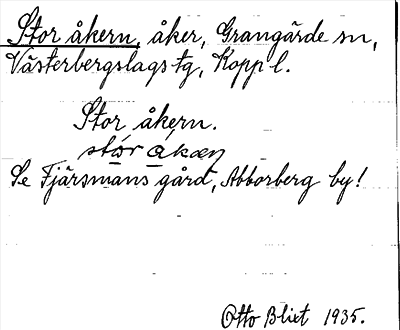 Stor åkern, åker, Grangärde sn,
Västerbergslags tg, Kopp l.
Stor åkern.
Se Fjärsmans gård, Abborberg by!
Otto Blixt 1935.